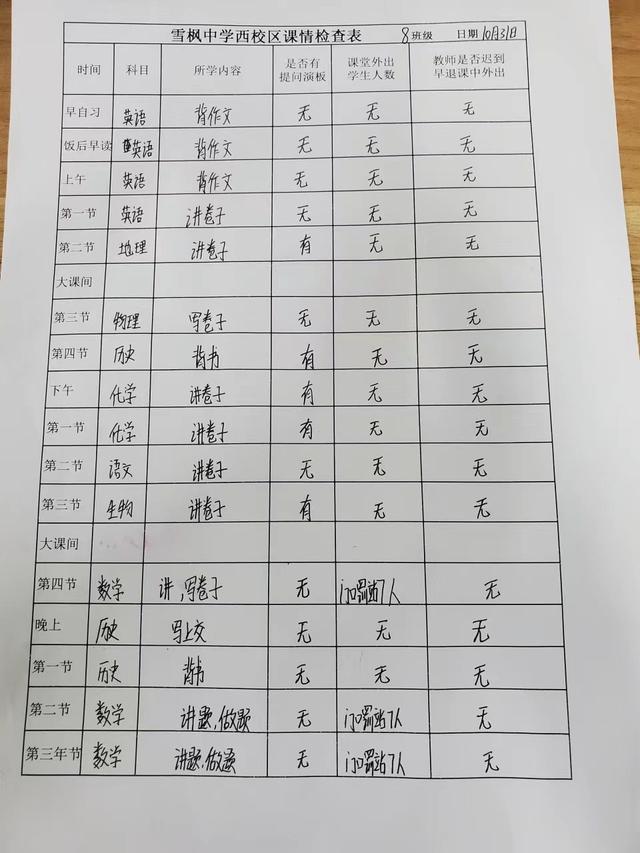 雪枫中学西校区课情检查表 8班级 日期10月31日
时间 科目 所学内容 是否有提问演板 课堂外出学生人数 教师是否迟到早退课中外出
早自习 英语 背作文 无 无 无
饭后早读 英语 背作文 无 无 无
上午 英语 背作文 无 无 无
第一节 英语 讲卷子 无 无 无
第二节 地理 讲卷子 有 无 无
大课间
第三节 物理 写卷子 无 无 无
第四节 历史 背书 有 无 无
下午 化学 讲卷子 有 无 无
第一节 化学 讲卷子 有 无 无
第二节 语文 讲卷子 无 无 无
第三节 生物 讲卷子 有 无 无
大课间
第四节 数学 讲,写卷子 无 门口罚站7人 无
晚上 历史 写上交 无 无 无
第一节 历史 背书 无 无 无
第二节 数学 讲题,做题 无 门口罚站7人 无
第三年节 数学 讲题,做题 无 门口罚站7人 无